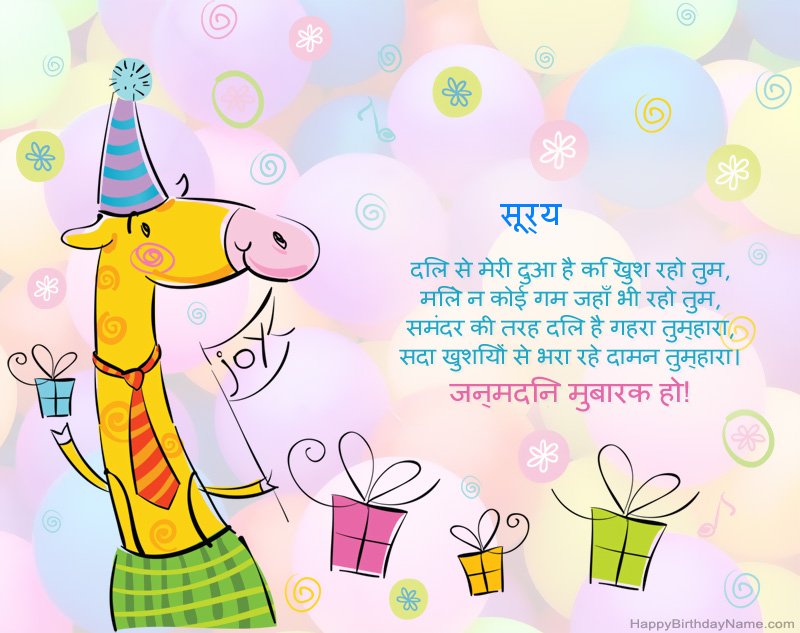 सूर्‌य
दलि से मेरी दुआ है कि खुश रहो तुम,
मलिे न कोई गम जहाँ भी रहो तुम,
समंदर की तरह दलि है गहरा तुम्‌हारा,
सदा खुशयिों से भरा रहे दामन तुम्‌हारा।
जन्‌मदनि मुबारक हो!
joy
HappyBirthdayName.com